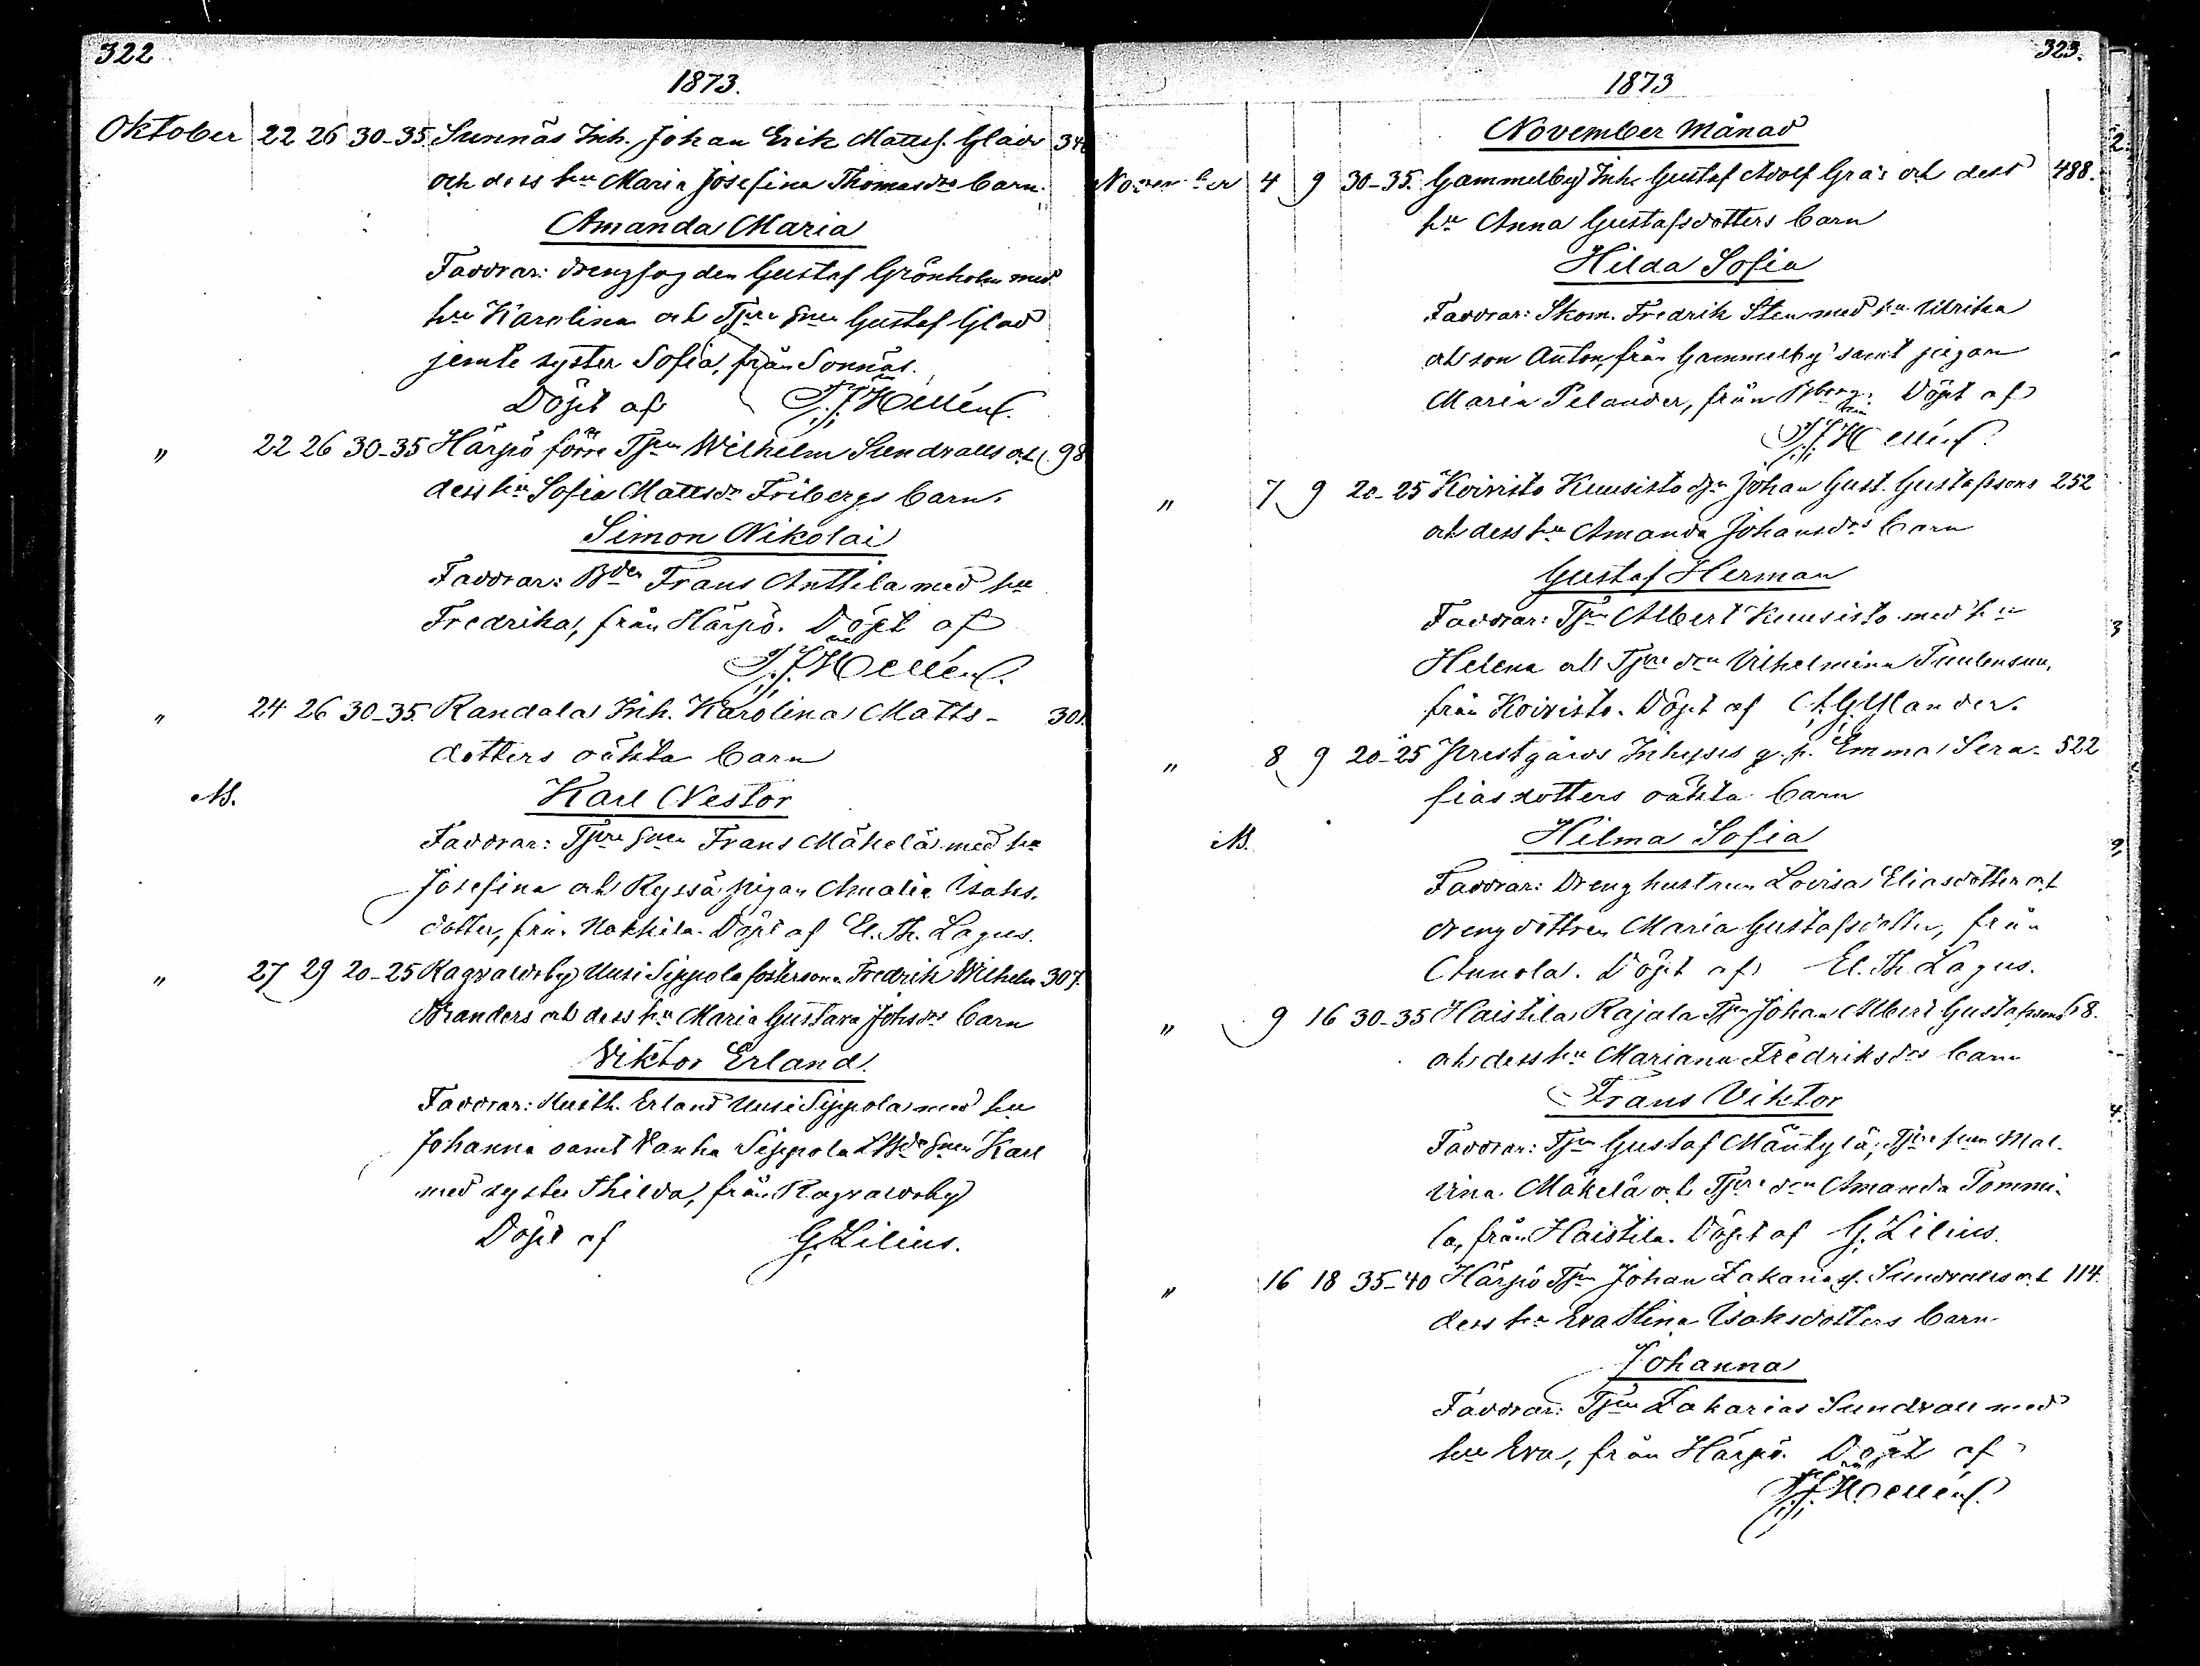 322
1873.
Oktober 22 26 30-35 Sunnäs Inh. Johan Erik Mattss. Glads 34
och dess hu Maria Josefina Thomasdrs barn.
Amanda Maria
Faddrar: drengfogden Gustaf Grönholm med
hu Karolina och Gustaf Glad
jemte syster Sofia, från Sonnäs.
Döpt af
" 22 26 30-35 Härpö förre Wilhelm Sundvalls och 98
dess hu Sofia Mattsdr Fribergs barn.
Simon Nikolai
Faddrar: Bden Frans Anttila med hu
Fredrika, från Härpö. Döpt af
" 24 26 30-35. Randala Inh. Karolina Matts- 301.
dotters oäkta barn
Karl Nestor
Faddrar: Frans Mäkelä med hu
Josefina och Ryssä pigan Amalia Isaks-
dotter, från Nakkila. Döpt af El. Th. Lagus.
" 27 29 20-25 Ragvaldsby Uusi Seppola fosterson Fredrik Wilhelm 307.
Branders och dess hu Maria Gustava Johsdrs barn
Viktor Erland.
Faddrar: Erland Uusi Seppola med hu
Johanna samt Vanha Seppola Karl
med syster Thilda, från Ragvaldsby
Döpt af G. Lilius.
323.
1873
November Månad
November 4 9 30-35. Gammelby Inh. Gustaf Adolf Grås och dess 488.
hu Anna Gustafsdotters barn
Hilda Sofia
Faddrar: Skom. Fredrik Sten med hu Ulrika
och son Anton, från Gammelby samt pigan
Maria Pelander, från Döpt af
" 7 9 20-25 Koivisto Kuusisto Johan Gust. Gustafssons 252
och dess hu Amanda Johansdrs barn
Gustaf Herman
Faddrar: Albert Kuusisto med hu
Helena och Vilhelmina
från Koivisto. Döpt af
" 8 9 20-25 Prestgårds Inhyses q.p. Emma Sera- 522
fiasdotters oäkta barn
Hilma Sofia
Faddrar: Dreng hustrun Lovisa Eliasdotter och
dreng dottren Maria Gustafsdotter, från
Annola. Döpt af El. Th. Lagus.
" 9 16 30-35 Haistila Rajala Johan Albert Gustafssons 68.
och dess hu Mariana Fredriksdrs barn
Frans Viktor
Faddrar: Gustaf Mäntylä, Mal-
vina Mäkelä och Amanda Tommi-
la, från Haistila. Döpt af G. Lilius.
" 16 18 35-40 Härpö Johan Zakariass. Sundvalls och 114.
dess hu Eva Stina Isaksdotters barn
Johanna
Faddrar: Zakarias Sundvall med
hu Eva, från Härpö. Döpt af